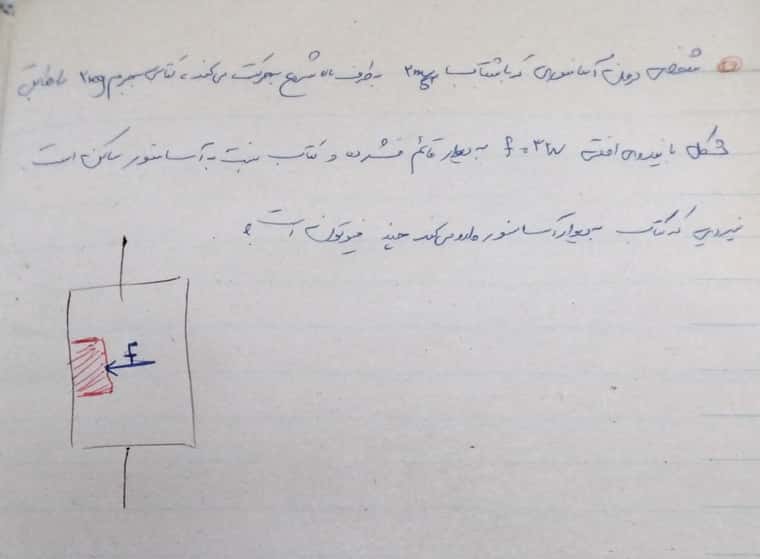 شخصی درون آسانسوری که با شتاب ۲m/s² به طرف بالا شروع به حرکت می‌کند، کتابی به جرم ۲kg را مطابق
شکل با نیروی افقی f=۳۲N به دیوار قائم فشرده و کتاب نسبت به آسانسور ساکن است
نیرویی که کتاب به دیوار آسانسور وارد می‌کند چند نیوتون است؟
F